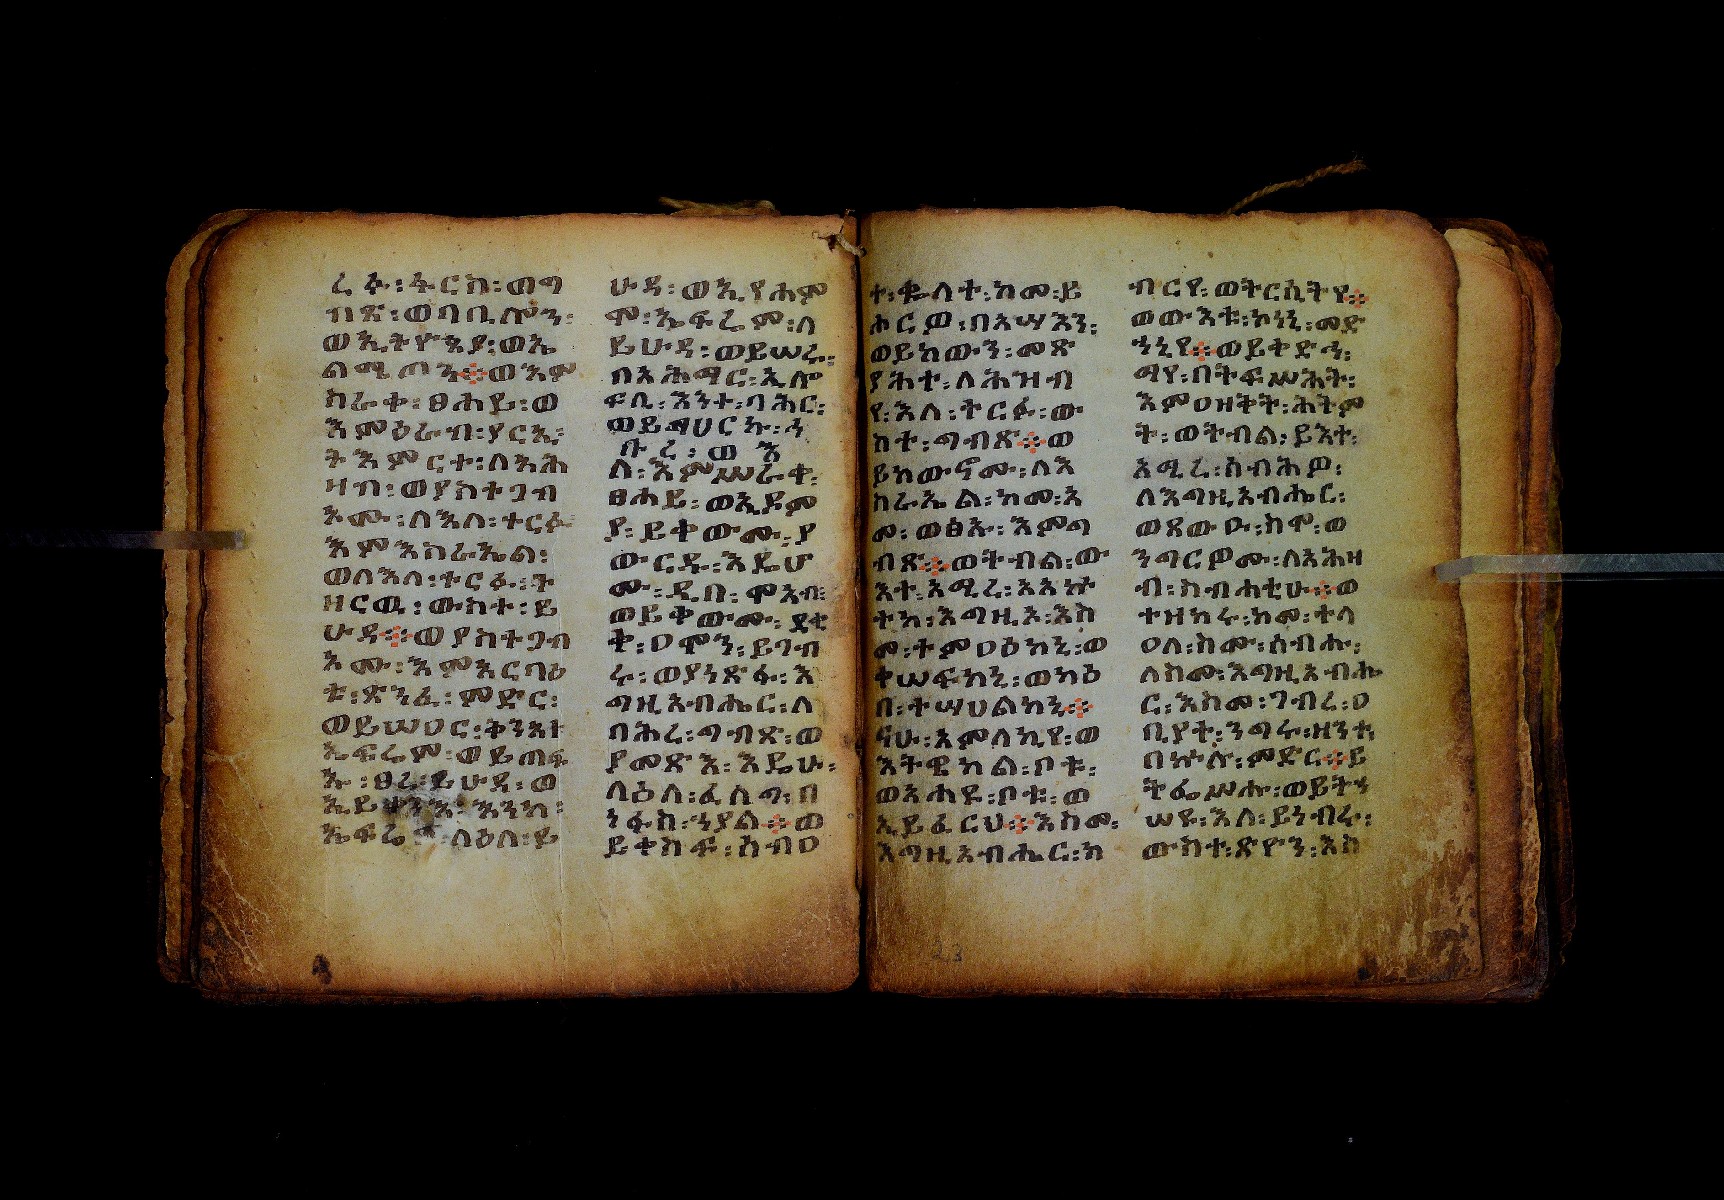 ረፉ፡ፋርስ፡ወግ
ብጽ፡ወባቢሎን፡
ወኢትዮጵያ፡ወኤ
ልሜጦን፨ወእም
ሥራቀ፡ፀሐይ፡ወ
እምዕራብ፡ያርኢ፡
ትእምርተ፡ለአሕ
ዛብ፡ወያስተጋብ
እሙ፡ለእለ፡ተርፉ፡
እምእስራኤል፡
ወለእለ፡ተርፉ፡ት
ዘርዉ፡ውስተ፡ይ
ሁዳ፨ወያስተጋብ
እሙ፡እምአርባዕ
ቱ፡ጽንፈ፡ምድር፡
ወይሠዐር፡ቅንአተ
ኤፍሬም፡ወይጠፍ
ኡ፡ፀረ፡ይሁዳ፡ወ
ኢይቀንእ፡እንከ፡
ኤፍሬም፡ላዕለ፡ይ
ሁዳ፡ወኢየሐም
ሞ፡ኤፍሬም፡ለ
ይሁዳ፡ወይሠረ፡
በአሕማር፡ኢሎ
ፍሊ፡እንተ፡ባሕር፡
ወይማህርኩ፡ኅ
ቡረ፡ወእ
ለ፡እምሥራቀ፡
ፀሐይ፡ወኢዶም
ያ፡ይቀውሙ፡ያ
ውርዱ፡እዴሆ
ሙ፡ዲበ፡ሞአብ፡
ወይቀውሙ፡ደቂ
ቀ፡ዐሞን፡ይገብ
ሩ፡ወያነጽፋ፡እ
ግዚአብሔር፡ለ
ባሕረ፡ግብጽ፡ወ
ያመጽእ፡እዴሁ፡
ላዕለ፡ፈለግ፡በ
ነፋስ፡ኀያል፨ወ
ይቀስፍ፡ሰብዐ
ተ፡ቈላተ፡ከመ፡ይ
ሕርዎ፡በአሣእን፡
ወይከውን፡መጽ
ያሕተ፡ለሕዝብ
የ፡እለ፡ተርፉ፡ው
ስተ፡ግብጽ፨ወ
ይከውኖሙ፡ለእ
ስራኤል፡ከመ፡አ
መ፡ወፅኡ፡እምግ
ብጽ፨ወትብል፡ው
እተ፡አሚረ፡አአኵ
ተከ፡እግዚኦ፡እስ
መ፡ተምዐዕከኒ፡ወ
ተሠፍከኒ፡ወካዕ
በ፡ተሣህልከኒ፨
ናሁ፡አምላኪየ፡ወ
እትዌከል፡ቦቱ፡
ወአሐዩ፡ቦቱ፡ወ
ኢይፈርህ፨እስመ፡
እግዚአብሔር፡ክ
ብርየ፡ወትርሲትየ፨
ወውእቱ፡ኮነኒ፡መድ
ኀኒየ፨ወይቀድሓ፡
ማየ፡በትፍሥሕት፡
እምዐዘቅት፡ሕይም
ት፡ወትብል፡ይእተ፡
አሚረ፡ሰብሕዎ፡
ለእግዚአብሔር፡
ወጸውዑ፡ስሞ፡ወ
ንግርዎሙ፡ለአሕዛ
ብ፡ስብሐቲሁ፨ወ
ተዘከሩ፡ከመ፡ተለ
ዐለ፡ስሙ፡ሰብሑ፡
ለስመ፡እግዚአብሔ
ር፡እስመ፡ገብረ፡ዐ
ቢያተ፡ንግሩ፡ዘንተ፡
በኵሉ፡ምድር፨ይ
ትፌሥሑ፡ወይትኀ
ሠዩ፡እለ፡ይነብሩ፡
ውስተ፡ጽዮን፡እስ